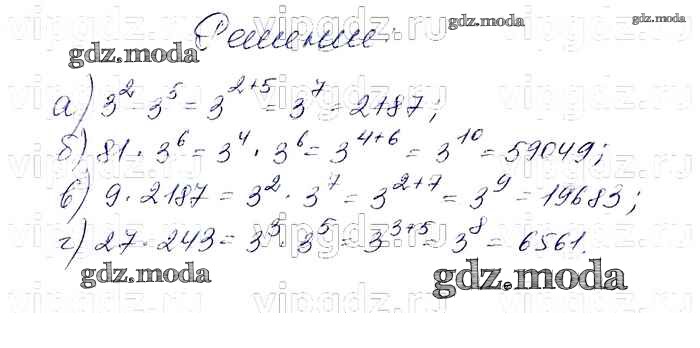 Решение:
gdz.moda
gdz.moda
gdz.moda
а) 3² · 3⁵ = 3²⁺⁵ = 3⁷ = 2187;
б) 81 · 3⁶ = 3⁴ · 3⁶ = 3⁴⁺⁶ = 3¹⁰ = 59049;
в) 9 · 2187 = 3² · 3⁷ = 3²⁺⁷ = 3⁹ = 19683;
г) 27 · 243 = 3³ · 3⁵ = 3³⁺⁵ = 3⁸ = 6561.
gdz.moda
gdz.moda
vipgdz.ru